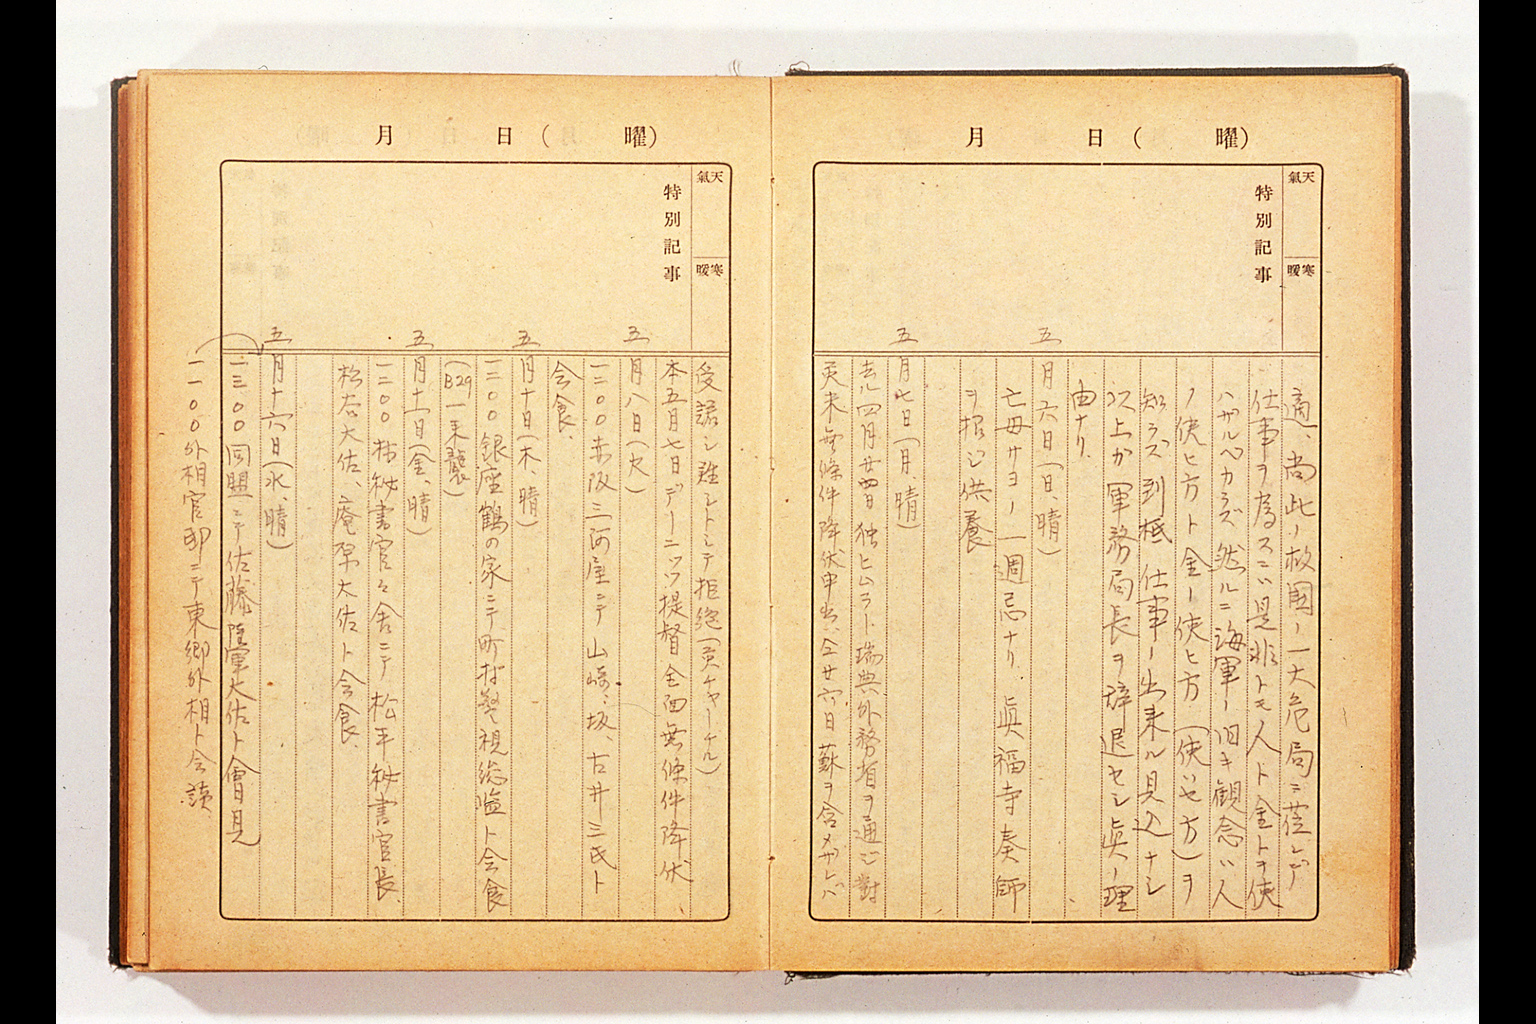 月 日(曜)
天氣
寒暖
特別記事
適、尚此ノ救國ノ一大危局ニ莅ンデ
仕事ヲ為スニハ是非トモ人ト金トヲ使
ハザルベカラズ 然ルニ海軍ノ旧キ観念ハ人
ノ使ヒ方ト金ノ使ヒ方(使ハセ方)ヲ
知ラズ 到底仕事ノ出来ル見込ナシ
以上ガ軍務局長ヲ辞退セシ眞ノ理
由ナリ
五月六日(日、晴)
亡母サヨノ一週忌ナリ 眞福寺奏師
ヲ招ジ供養
五月七日(月、晴)
去ル四月廿四日独ヒムラー瑞典外務省ヲ通ジ對
英米無條件降伏申出、仝廿六日蘇ヲ含メザレバ
月 日(曜)
天氣
寒暖
特別記事
受諾シ難シトシテ拒絶(英チャーチル)
本五月七日デーニッツ提督全面無條件降伏、
五月八日(火)
一二〇〇赤阪三河屋ニテ山崎、坂、古井三氏ト
会食、
五月十日(木、晴)
一二〇〇銀座鶴の家ニテ町村警視総監ト会食
(B29一来襲)
五月十一日(金、晴)
一二〇〇 秘書官々舎ニテ松平秘書官長、
松谷大佐、大佐ト会食、
五月十六日(水、晴)
一三〇〇同盟ニテ佐藤大佐ト會見
一一〇〇外相官邸ニテ東郷外相ト会談